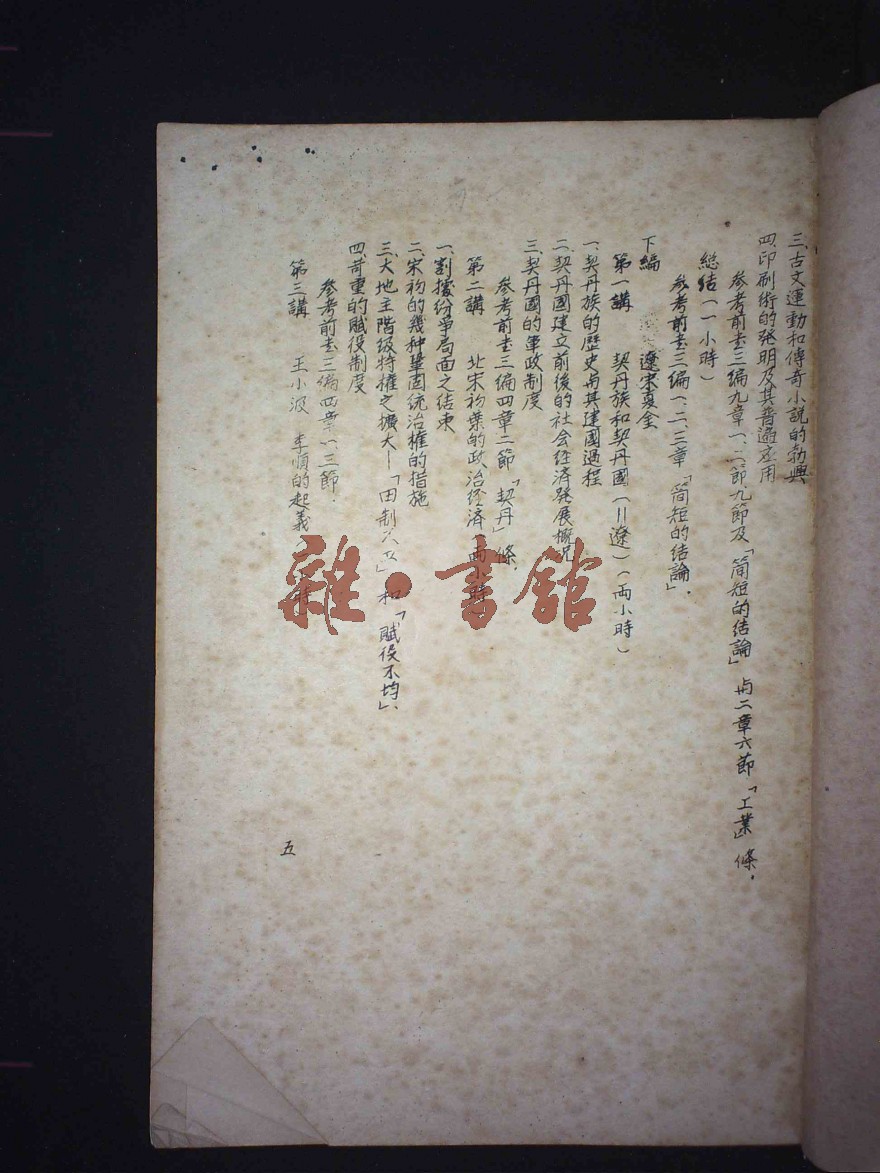 三、古文運動和傳奇小説的勃興
四、印刷術的発明及其普遍应用
参考前書三編九章一、二節九節及「簡短的结論」與二章六節「工業」條．
總结(一小時)
参考前書三编一、二、三章「简短的结論」．
下編 遼宋夏金
第一講 契丹族和契丹國(川遼)(両小時)
一、契丹族的歷史与其建國過程
二、契丹國建立前後的社会経済発展概况
三、契丹國的軍政制度
参考前書三编四章二節「契丹」條．
第二講 北宋初葉的政治経済 両小時
一、割據纷爭局面之结束
二、宋初的幾种鞏固統治權的措施
三、大地主階級特權之擴大—「田制不立」和「賦役不均」．
四、苛重的賦役制度
参考前書三编四章一、三節．
第三講 王小波 李順的起義 時
五
雜·書館